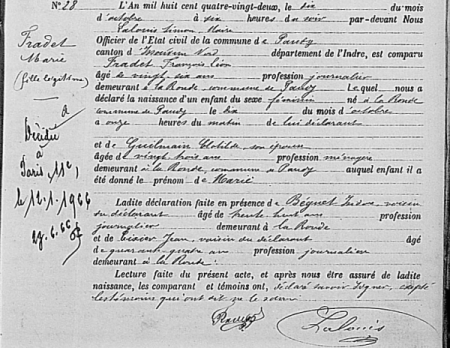 N° 28
Fradet
Marie
(fille légitime)
Décédée
à
Paris, 11e,
le 12.1.1966
L'An mil huit cent quatre-vingt-deux, le six du mois
d'octobre à six heures du soir par-devant Nous
Simon Maire
Officier de l'Etat civil de la commune de Paudy
canton d'Issoudun Nord département de l'Indre, est comparu
Fradet François Léon
âgé de vingt six ans profession journalier
demeurant à la Ronde commune de Paudy Lequel nous a
déclaré la naissance d'un enfant du sexe féminin né à la Ronde
commune de Paudy le six du mois d'octobre
à onze heures du matin de lui déclarant
et de Guilmain Clotilde, son épouse
âgée de vingt trois ans profession ménagère
demeurant à la Ronde, commune de Paudy auquel enfant il a
été donné le prénom de Marie
Ladite déclaration faite en présence de voisin
du déclarant âgé de trente huit ans profession
journalier demeurant à la Ronde
et de Jean, voisin du déclarant âgé
de quarante quatre ans profession journalier
demeurant à la Ronde.
Lecture faite du présent acte, et après nous être assuré de ladite
naissance, les comparant et témoins ont, déclaré savoir signer, excepté
les témoins qui ont dit ne le savoir